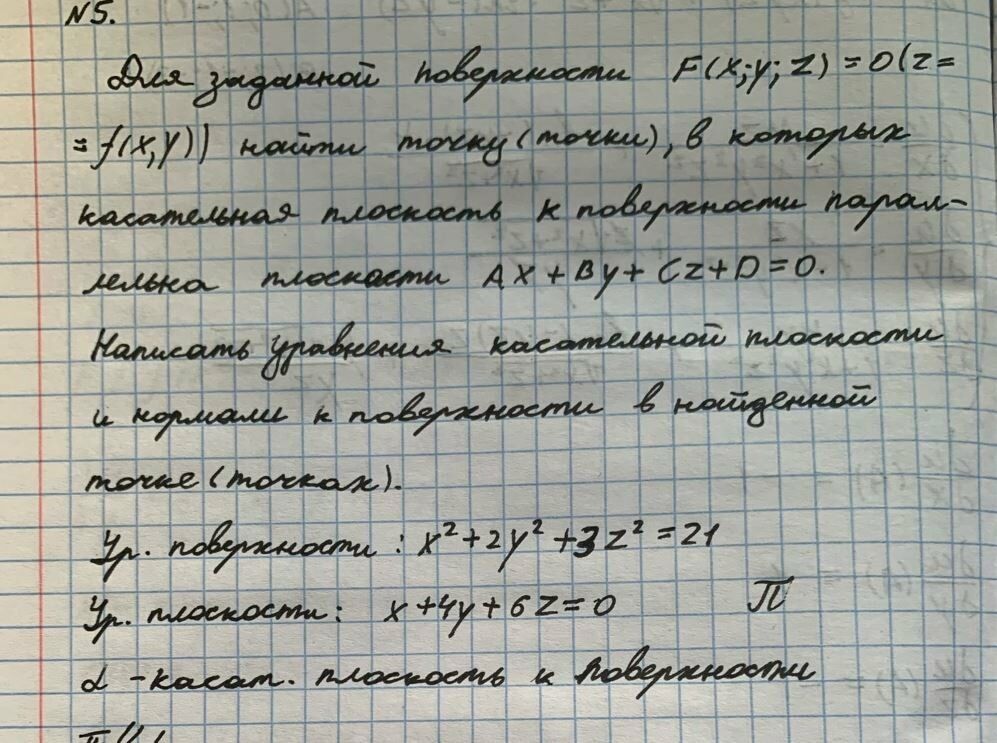 N5.
Для заданной поверхности F(x;y;z)=0(z=
=f(x,y)) найти точку(точки), в которых
касательная плоскость к поверхности парал-
лельна плоскости Ax+By+Cz+D=0.
Написать уравнения касательной плоскости
и нормали к поверхности в найденной
точке(точках).
Ур. поверхности: x²+2y²+3z²=21
Ур. плоскости: x+4y+6z=0 П
α -касат. плоскость к поверхности